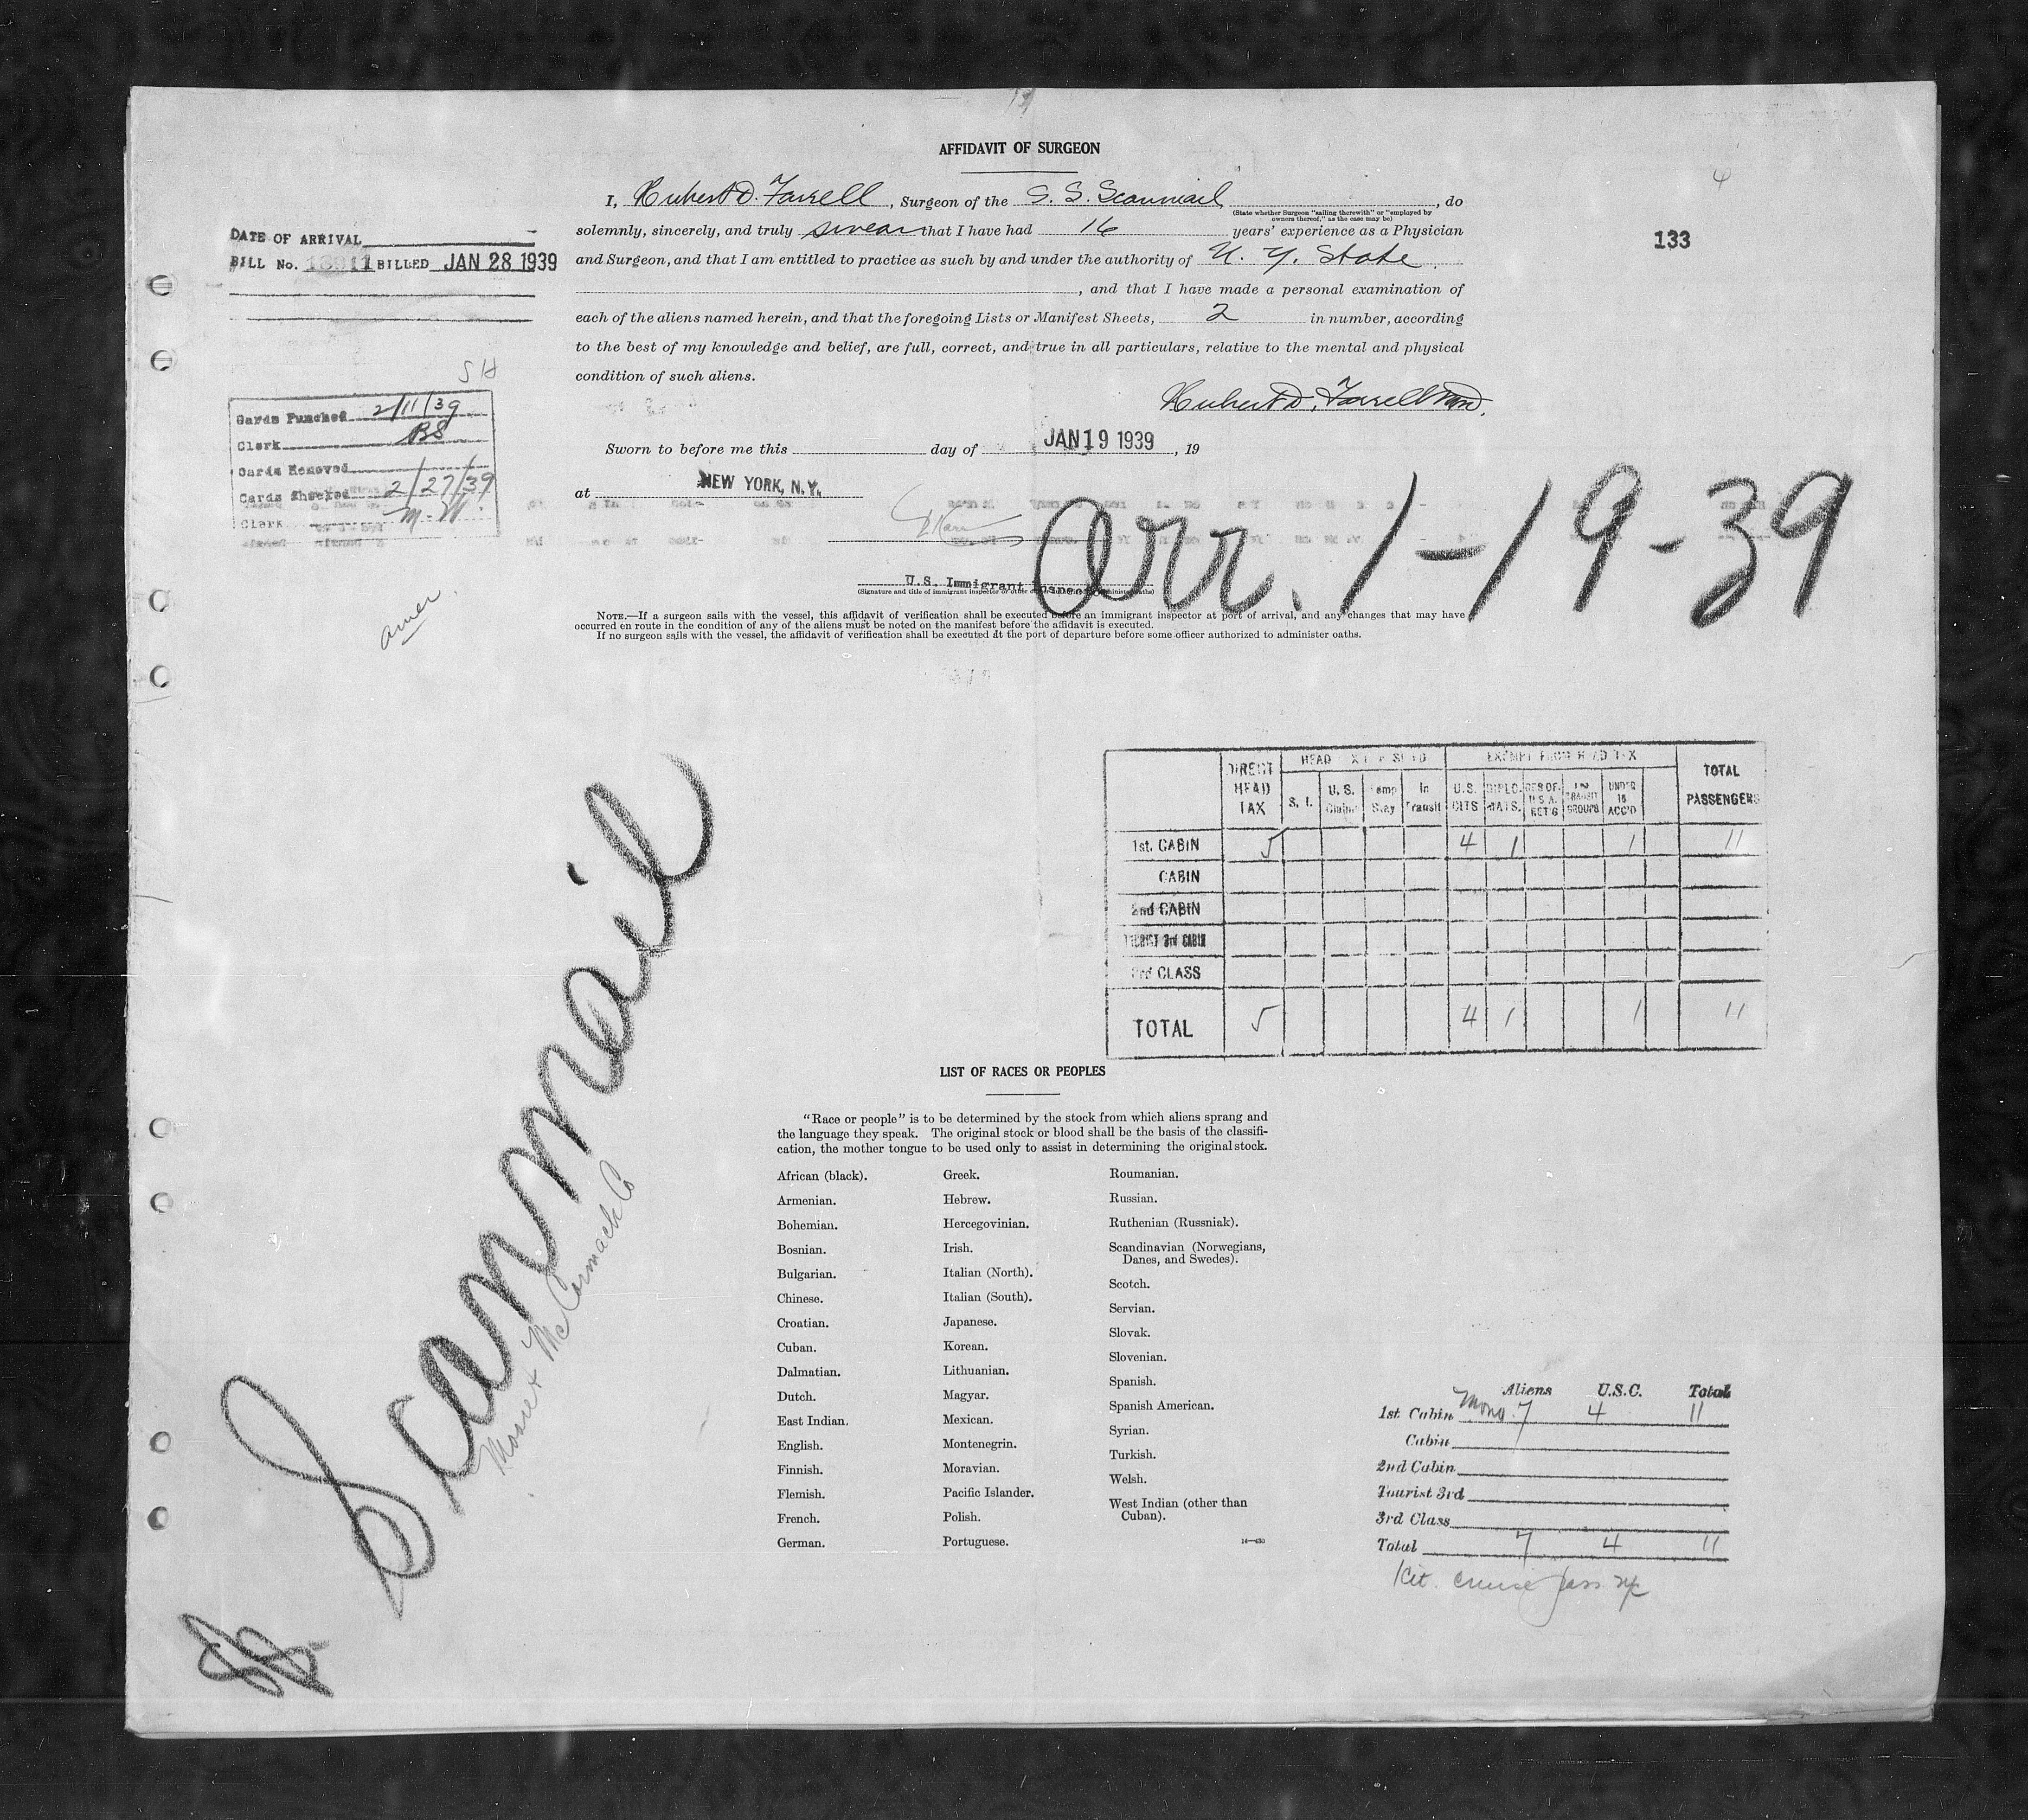 AFFIDAVIT OF SURGEON
4
I, Hubert D. Farrell, Surgeon of the S. S. Scanmail, do
(State whether Surgeon "sailing therewith" or "employed by
owners thereof," as the case may be)
solemnly, sincerely, and truly swear that I have had 16 years' experience as a Physician
and Surgeon, and that I am entitled to practice as such by and under the authority of N. Y. State.
, and that I have made a personal examination of
each of the aliens named herein, and that the foregoing Lists or Manifest Sheets, 2 in number, according
to the best of my knowledge and belief, are full, correct, and true in all particulars, relative to the mental and physical
condition of such aliens.
Hubert D. Farrell MD.
133
DATE OF ARRIVAL
BILL No. 13911 BILLED JAN 28 1939
SH
Cards Punched 2/11/39
Clerk BS
Cards Removed
Cards Checked 2/27/39
Clerk M.W.
Sworn to before me this day of JAN 19 1939, 19
at NEW YORK, N.Y.
U.S. Immigrant Inspector
(Signature and title of immigrant inspector or other officer authorized to administer oaths)
Arr. 1-19-39
NOTE.—If a surgeon sails with the vessel, this affidavit of verification shall be executed before an immigrant inspector at port of arrival, and any changes that may have
occurred en route in the condition of any of the aliens must be noted on the manifest before the affidavit is executed.
If no surgeon sails with the vessel, the affidavit of verification shall be executed at the port of departure before some officer authorized to administer oaths.
amer.
Scanmail
Moore & McCormack Co
DIRECT HEAD TAX
S. I.
U. S. Claims
Temp Stay
In Transit
EXEMPT FROM HEAD TAX
U.S. CITS
DIPLOMATS.
RES OF. U S A. RET'G
TRANSIT GROUPS
UNDER 16 ACC'D
TOTAL PASSENGERS
1st. CABIN 5 4 1 1 11
CABIN
2nd CABIN
TOURIST 3rd CABIN
3rd CLASS
TOTAL 5 4 1 1 11
LIST OF RACES OR PEOPLES
"Race or people" is to be determined by the stock from which aliens sprang and
the language they speak. The original stock or blood shall be the basis of the classifi-
cation, the mother tongue to be used only to assist in determining the original stock.
African (black).
Armenian.
Bohemian.
Bosnian.
Bulgarian.
Chinese.
Croatian.
Cuban.
Dalmatian.
Dutch.
East Indian.
English.
Finnish.
Flemish.
French.
German.
Greek.
Hebrew.
Hercegovinian.
Irish.
Italian (North).
Italian (South).
Japanese.
Korean.
Lithuanian.
Magyar.
Mexican.
Montenegrin.
Moravian.
Pacific Islander.
Polish.
Portuguese.
Roumanian.
Russian.
Ruthenian (Russniak).
Scandinavian (Norwegians,
Danes, and Swedes).
Scotch.
Servian.
Slovak.
Slovenian.
Spanish.
Spanish American.
Syrian.
Turkish.
Welsh.
West Indian (other than
Cuban).
Aliens U.S.C. Total
1st Cabin 7 4 11
Cabin
2nd Cabin
Tourist 3rd
3rd Class
Total 7 4 11
1 cit. cruise pass